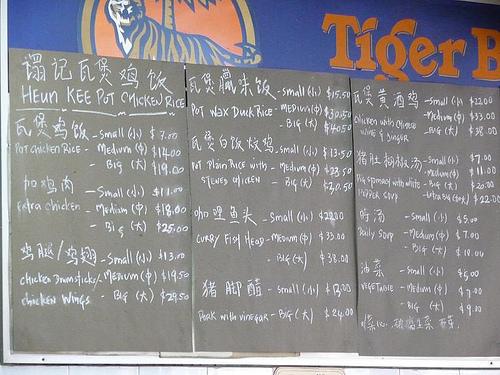 Tiger B
瓦煲鸡饭
HEUN KEE POT CHICKEN RICE
瓦煲鸡饭 - Small (小) $7.00
Pot Chicken Rice - Medium (中) $14.00
- Big (大) $19.00
加鸡肉 - Small (小) $11.00
Extra chicken - Medium (中) $18.00
- Big (大) $25.00
鸡腿/鸡翅 - Small (小) $13.00
chicken Drumsticks/ - Medium (中) $19.50
chicken Wings - Big (大) $29.50
瓦煲臘味饭 - Small (小)
Pot Wax Duck Rice - Medium (中)
- Big (大)
瓦煲白饭炆鸡 - Small (小) $13.50
Pot Plain Rice with - Medium (中) $23.50
Stewed chicken - Big (大) $30.50
咖哩鱼头 - Small (小) $22.00
Curry Fish Head - Medium (中) $33.00
- Big (大) $38.00
猪脚醋 - Small (小)
Pork with vinegar - Big (大) $24.00
瓦煲黄酒鸡 - Small (小) $22.00
chicken with chinese - Medium (中) $33.00
wine & ginger - Big (大) $38.00
猪肚胡椒汤 - Small (小) $7.00
Pig stomach with white - Medium (中) $11.00
Pepper Soup - Big (大)
- Extra Big (大) $22.00
时汤 - Small (小) $5.00
Daily Soup - Medium (中) $7.00
- Big (大) $10.00
油菜 - Small (小) $5.00
Vegetable - Medium (中) $7.00
- Big (大) $9.00